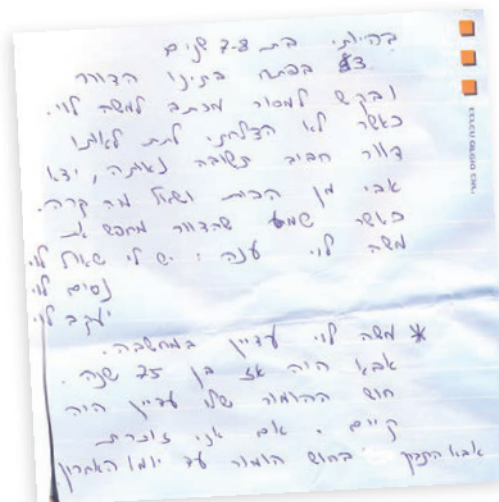 בהיותי בת 7-8 שנים
בפתח ביתנו הדוור
וביקש למסור מכתב למשה לוי.
כאשר לא הצלחתי לתת לאותו
דוור חביב תשובה נאותה, יצא
אבי מן הבית ושאל מה קרה.
כאשר שמע שהדוור מחפש את
משה לוי ענה: יש לי שאול לוי
נסים לוי
יעקב לוי
* משה לוי עדיין במחשבה.
אבא היה אז בן 75 שנה.
חוש ההומור שלו עדיין היה
קיים. אם אני זוכרת
אבא התברך בחוש הומור עד יומו האחרון